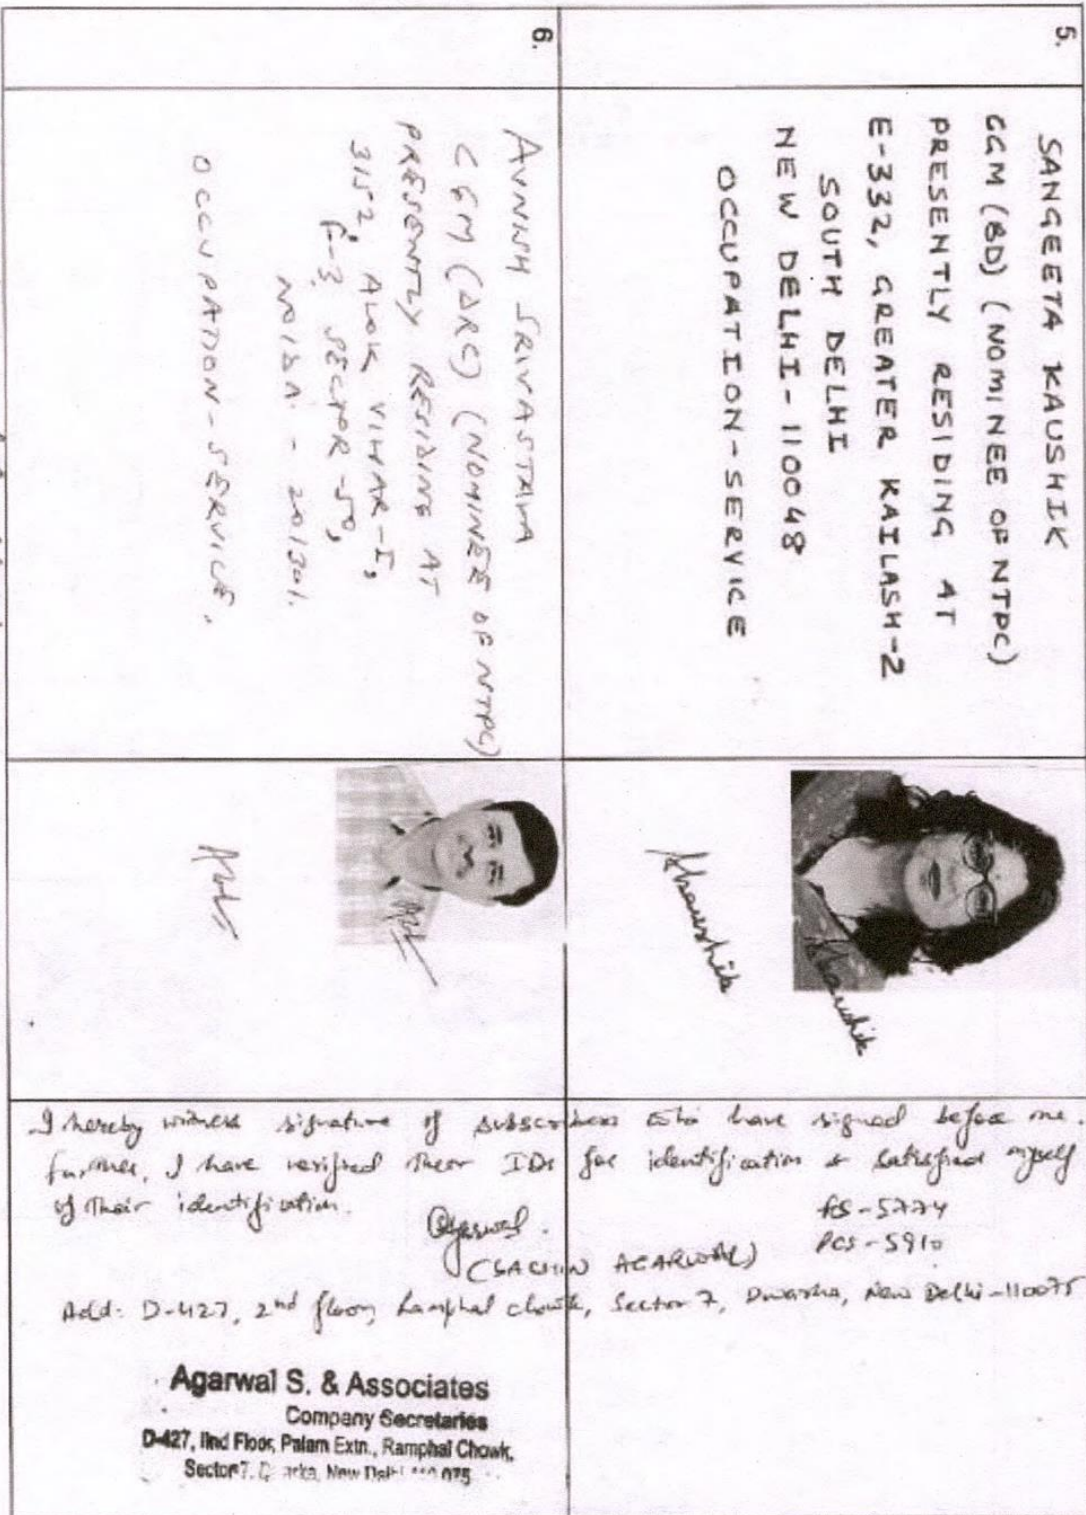 5.
SANGEETA KAUSHIK
GGM (BD) (NOMINEE OF NTPC)
PRESENTLY RESIDING AT
E-332, GREATER KAILASH-2
SOUTH DELHI
NEW DELHI-110048
OCCUPATION-SERVICE
Skaushik
Skaushik
6.
AVNISH SRIVASTAVA
CGM (ARC) (NOMINEE OF NTPC)
PRESENTLY RESIDING AT
3152, ALOK VIHAR-I,
F-3, SECTOR-50,
NOIDA - 201301.
OCCUPATION-SERVICE.
I hereby witness signature of subscribers who have signed before me.
further, I have verified their IDs for identification & satisfied myself
of their identification.
Agarwal.
(SACHIN AGARWAL)
FCS-5774
PCS-5910
Add: D-427, 2nd floor, Ramphal chowk, Sector 7, Dwarka, New Delhi-110075
Agarwal S. & Associates
Company Secretaries
D-427, IInd Floor, Palam Extn., Ramphal Chowk,
Sector 7, Dwarka, New Delhi 110 075